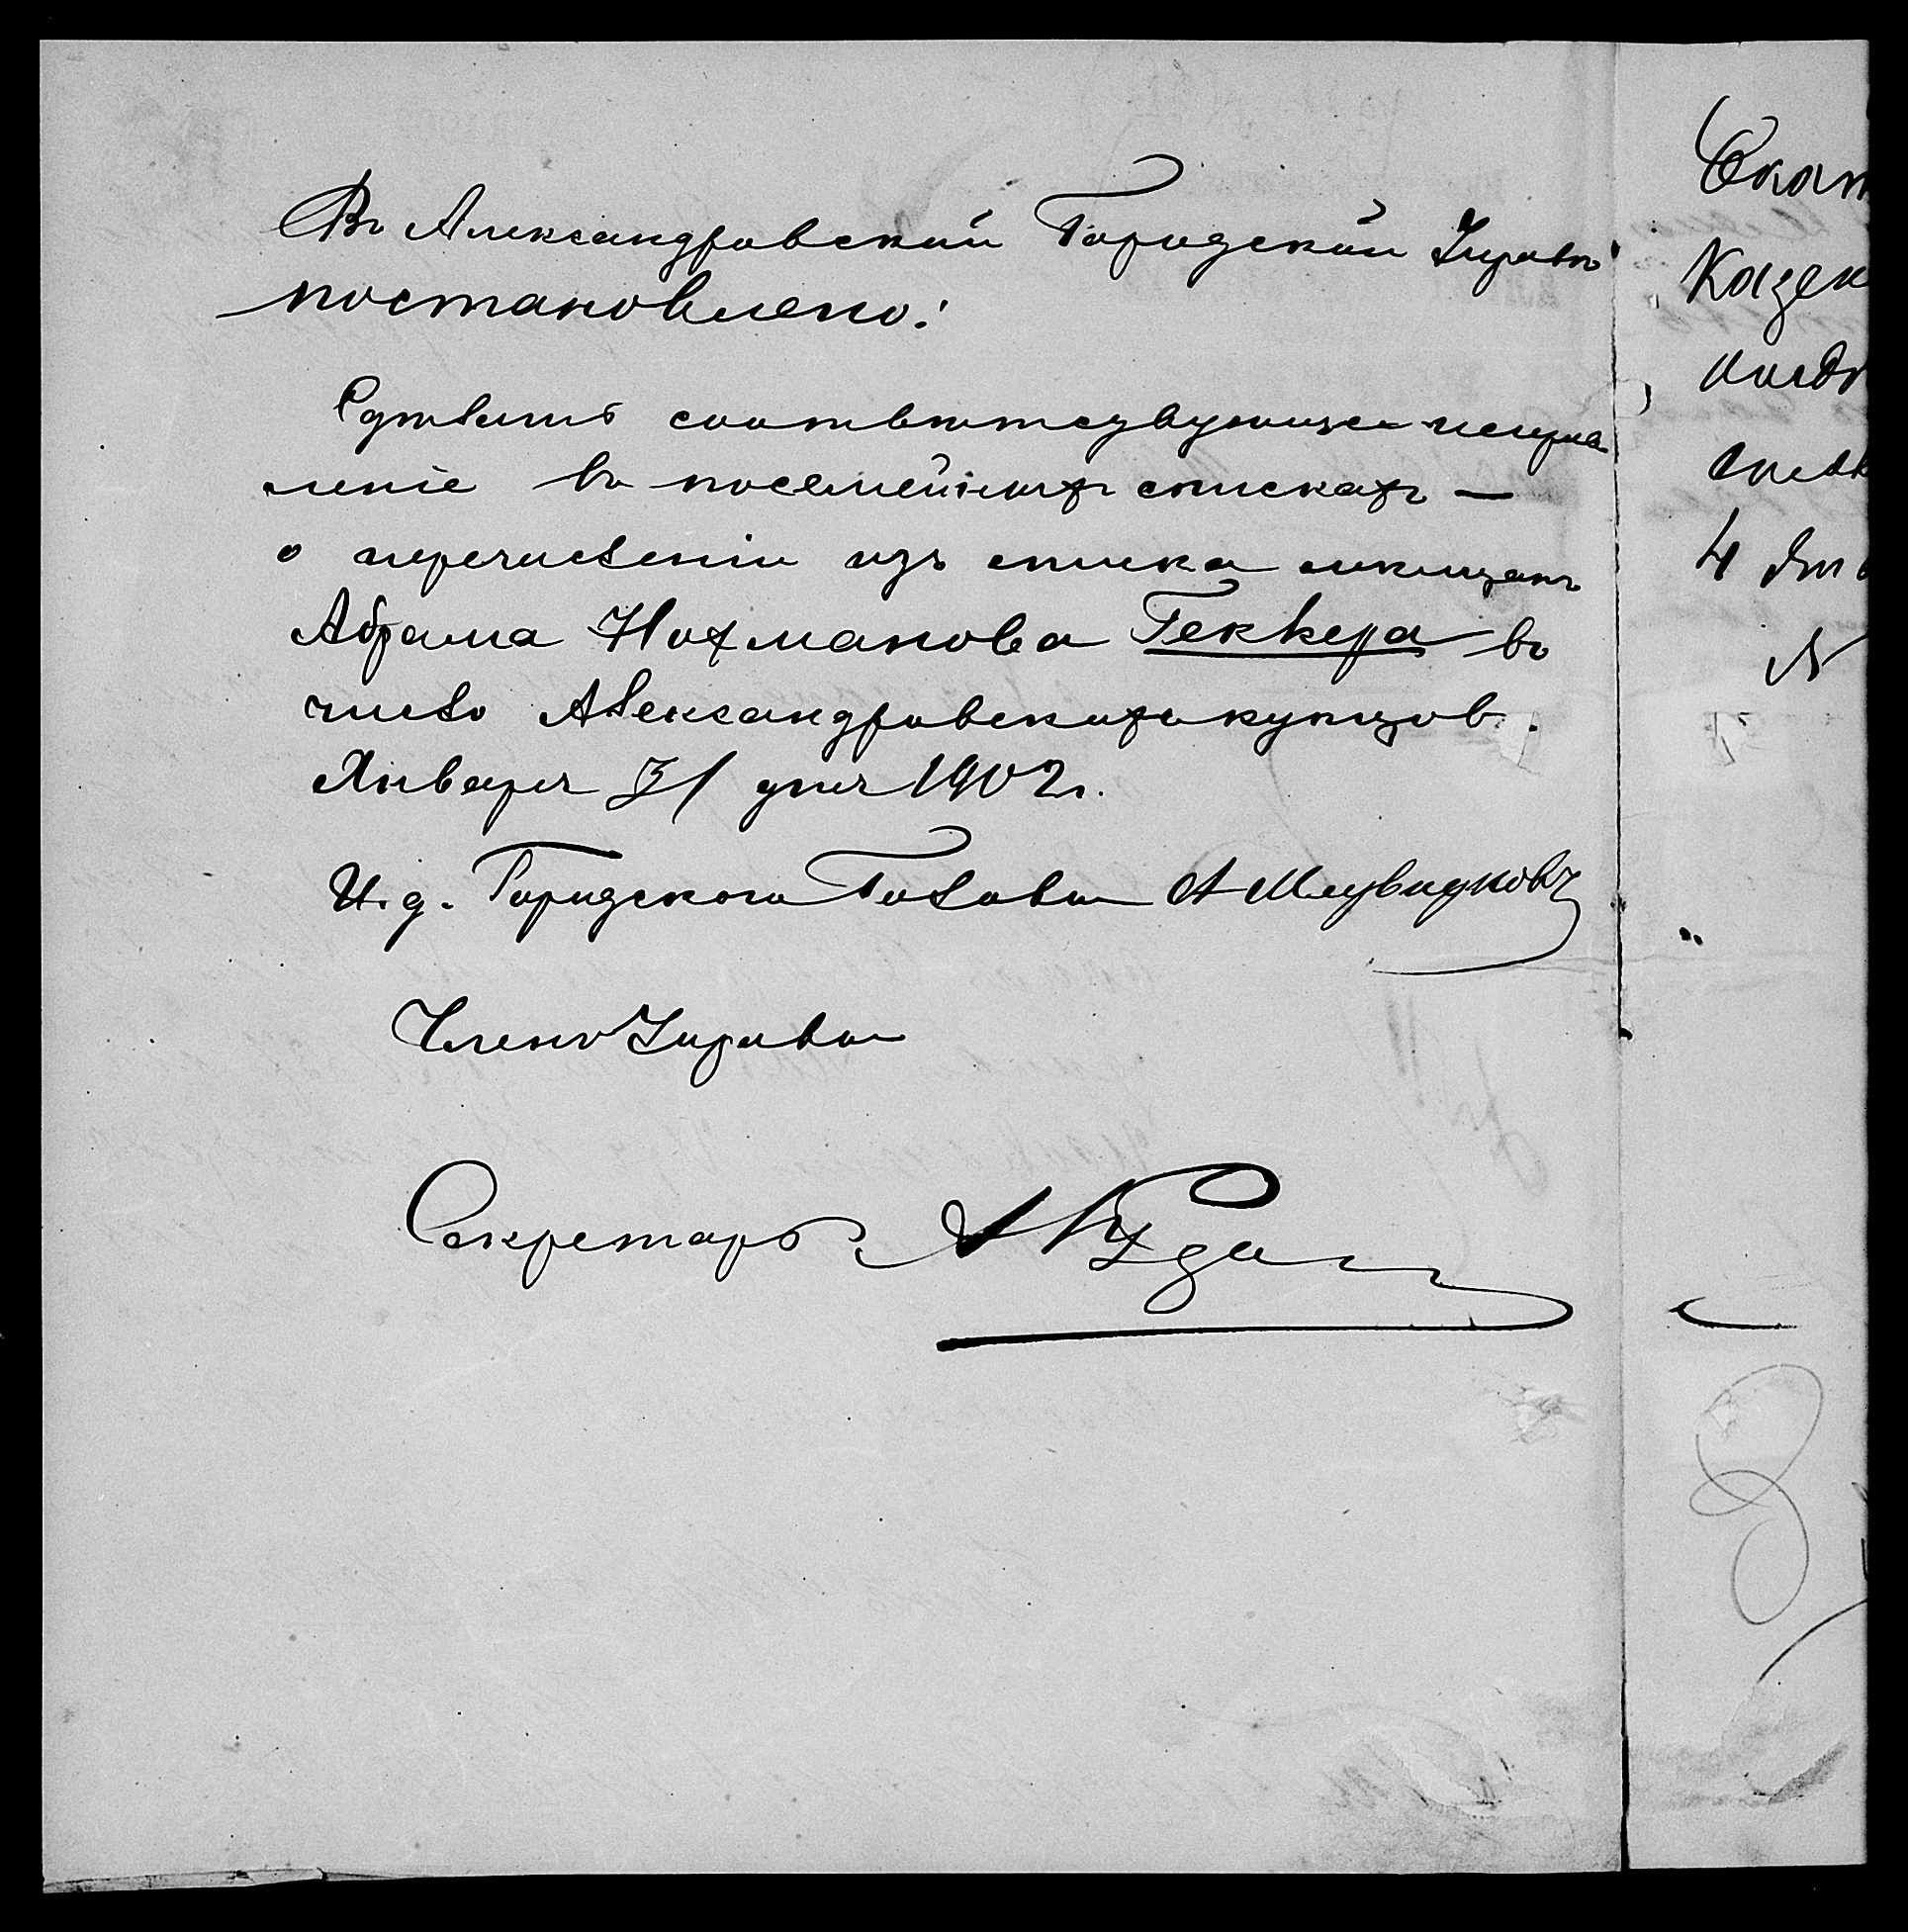 Въ Александровской Городской Управѣ
постановлено:
Сдѣлать соотвѣтствующее исправ
леніе въ посемейныхъ спискахъ —
о перечисленіи изъ списка мѣщанъ
Абрама Нохманова Геккера въ
число Александровскихъ купцовъ.
Января 31 дня 1902 г.
И. д. Городского Головы А
Членъ Управы
Секретарь А
Казен
4